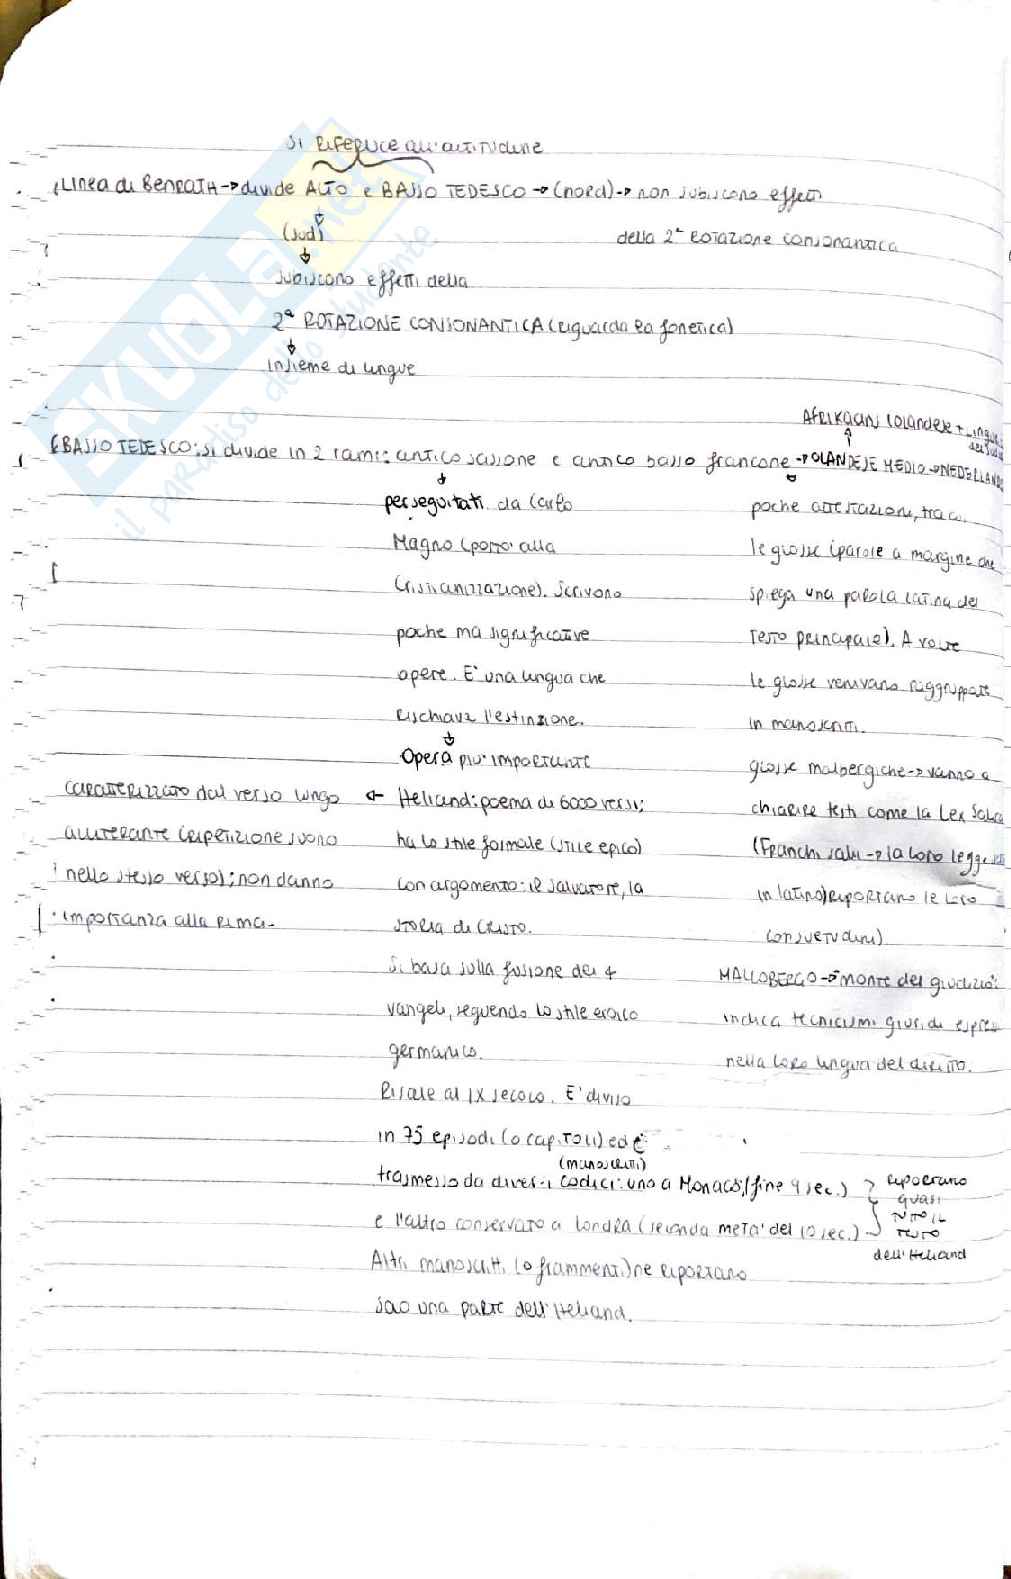 si riferisce all'altitudine
Linea di Benrath → divide ALTO e BASSO TEDESCO → (nord) → non subiscono effetti
della 2ª rotazione consonantica
(sud)
subiscono effetti della
2ª ROTAZIONE CONSONANTICA (riguarda la fonetica)
insieme di lingue
Afrikaans (olandese +
BASSO TEDESCO: si divide in 2 rami: antico sassone e antico basso francone → OLANDESE MEDIO →
perseguitati da Carlo
Magno (portò alla
Cristianizzazione). Scrivono
poche ma significative
opere. E' una lingua che
rischiava l'estinzione.
Opera piu' importante
Heliand: poema di 6000 versi;
ha lo stile formale (stile epico)
con argomento: il salvatore, la
storia di Cristo.
Si basa sulla fusione dei 4
vangeli, seguendo lo stile eroico
germanico.
Risale al IX secolo. E' diviso
in 75 episodi (o capitoli) ed è
(manoscritti)
trasmesso da diversi codici: uno a Monaco (fine 9 sec.)
e l'altro conservato a Londra (seconda metà del 10 sec.)
riportano
quasi
tutto il
testo
dell'Heliand
Altri manoscritti (o frammenti) ne riportano
solo una parte dell'Heliand.
caratterizzato dal verso lungo
allitterante (ripetizione suono
nello stesso verso); non danno
importanza alla rima.
poche attestazioni, tra cui
le glosse (parole a margine che
spiega una parola latina del
testo principale). A volte
le glosse venivano raggruppate
in manoscritti.
glosse malbergiche → vanno a
chiarire testi come la Lex Salica
(Franchi salii → la loro legge
in latino) riportano le loro
consuetudini)
MALLOBERGO → monte del giudizio:
indica tecnicismi giuridi
nella loro lingua del diritto.
SKUOLA.net
il paradiso dello studente